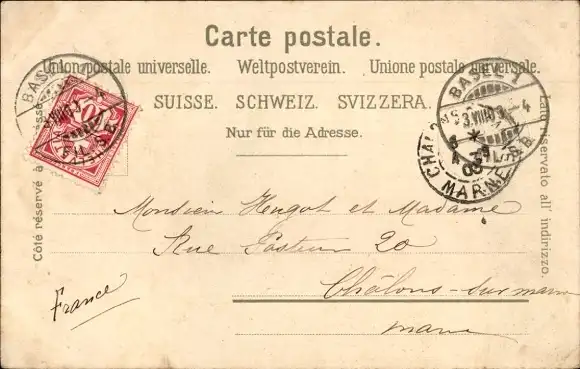 Carte postale.
Union postale universelle. Weltpostverein. Unione postale universale.
SUISSE. SCHWEIZ. SVIZZERA.
Nur für die Adresse.
Côté réservé à
Lato riservato all' indirizzo.
BASEL
10
BASEL 2
3.VIII.03
4
CHALONS
MARNE
03
Monsieur Hugot et Madame
Rue Pasteur 20
Châlons-sur marne
marne
France